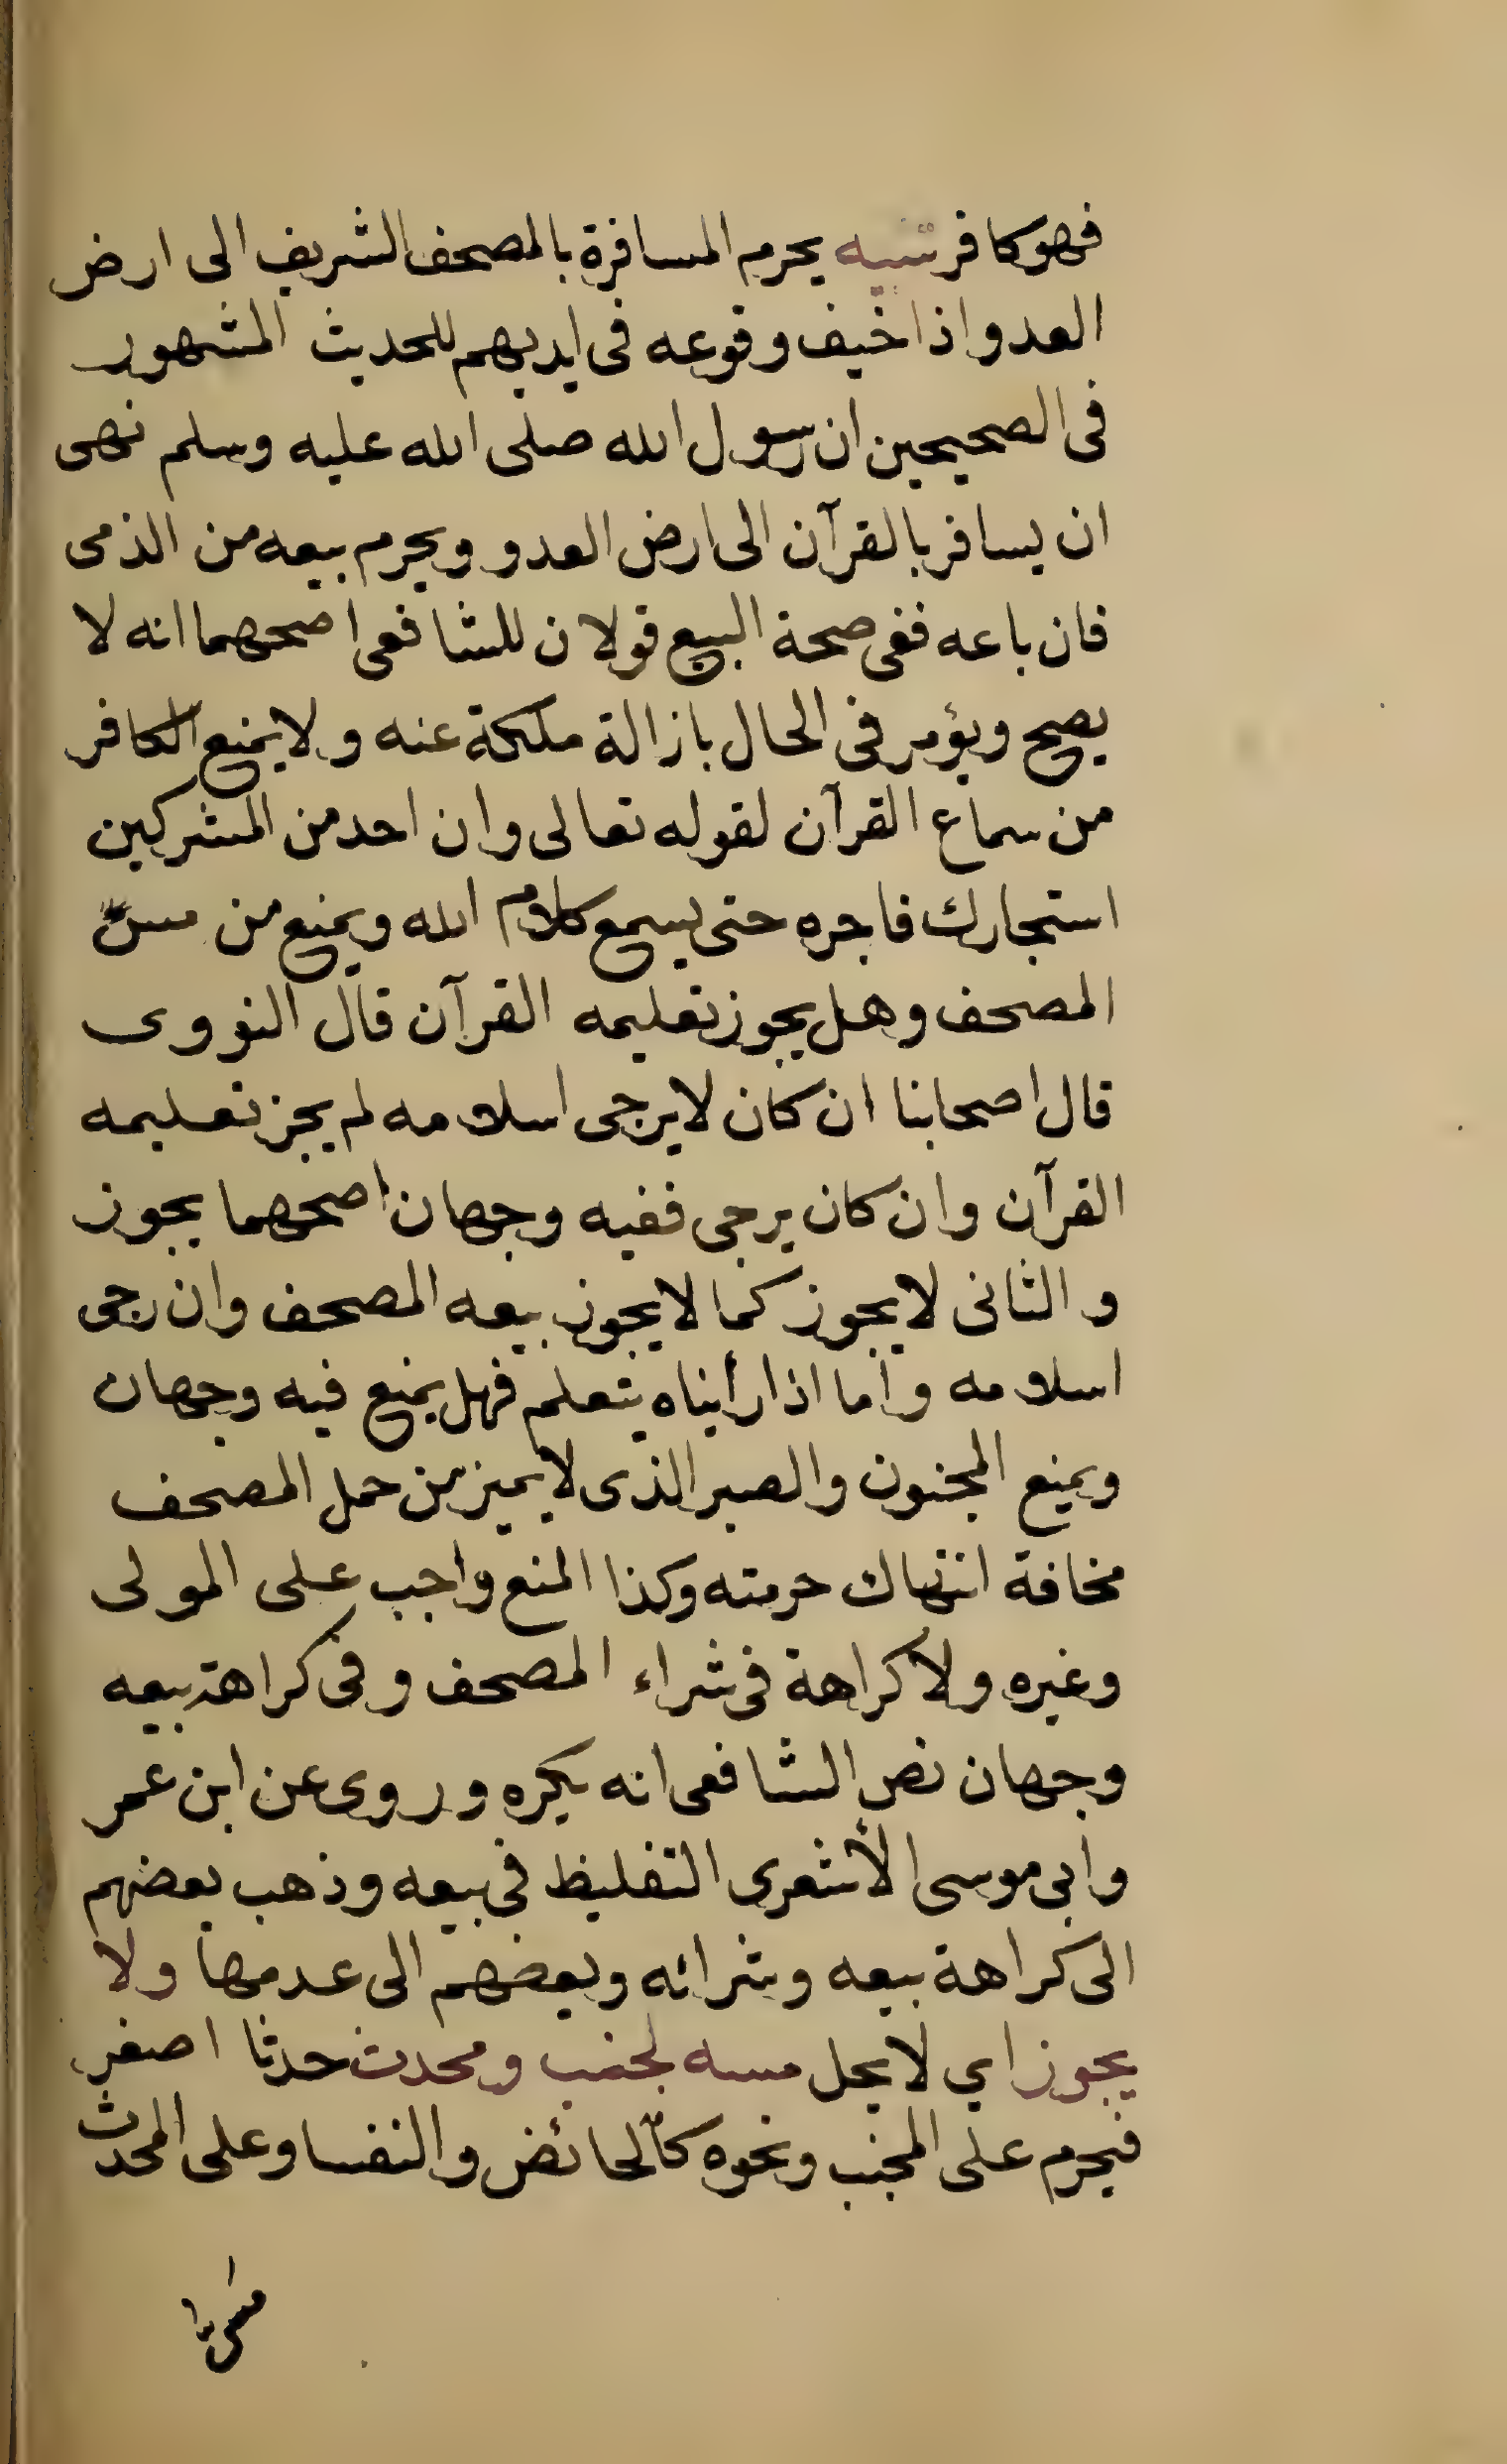 فهو كافر تنبيه يحرم المسافرة بالمصحف الشريف الى ارض
العدو اذا خيف وقوعه فى ايديهم للحديث المشهور
فى الصحيحين ان رسول الله صلى الله عليه وسلم نهى
ان يسافر بالقرآن الى ارض العدو ويحرم بيعه من الذمى
فان باعه ففى صحة البيع قولان للشافعى اصحهما انه لا
يصح ويؤمر فى الحال بازالة ملكة عنه ولا يمنع الكافر
من سماع القرآن لقوله تعالى وان احد من المشركين
استجارك فاجره حتى يسمع كلام الله ويمنع من مسّ
المصحف وهل يجوز تعليمه القرآن قال النووى
قال اصحابنا ان كان لا يرجى اسلامه لم يجز تعليمه
القرآن وان كان يرجى ففيه وجهان اصحهما يجوز
والثانى لا يجوز كما لا يجوز بيعه المصحف وان رجى
اسلامه واما اذا رأيناه يتعلم فهل يمنع فيه وجهان
ويمنع المجنون والصبر الذى لا يميز من حمل المصحف
مخافة انتهاك حرمته وكذا المنع واجب على المولى
وغيره ولا كراهة فى شراء المصحف وفى كراهة بيعه
وجهان نص الشافعى انه يكره وروى عن ابن عمر
وابى موسى الأشعرى التغليظ فى بيعه وذهب بعضهم
الى كراهة بيعه وشرائه وبعضهم الى عدمها ولا
يجوز اي لا يحل مسه لجنب ومحدث حدثا اصغر
فيحرم على المجنب ونحوه كالحائض والنفسا وعلى المحدث